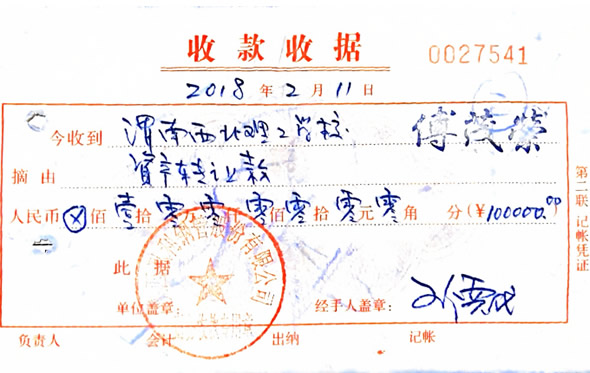 收款收据
0027541
2018年2月11日
今收到 渭南西北理工学校
摘由 资产转让款
人民币⊗佰壹拾零万零仟零佰零拾零元零角 分(¥100000.00)
此据
股份有限公司
单位盖章: 经手人盖章:
负责人 会计 出纳 记帐
第二联 记帐凭证